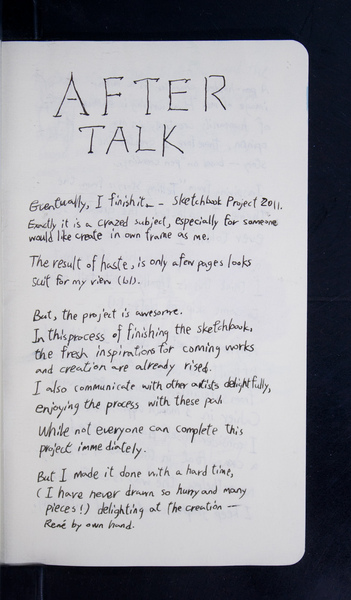 AFTER
TALK
Eventually, I finish it. — Sketchbook Project 2011.
Exactly it is a crazed subject, especially for someone
would like create in own frame as me.
The result of haste, is only a few pages looks
suit for my view
But, the project is awesome.
In this process of finishing the sketchbook,
the fresh inspirations for coming works
and creation are already rised.
I also communicate with other artists delightfully,
enjoying the process with these
While not everyone can complete this
project immediately.
But I made it done with a hard time,
(I have never drawn so hurry and many
pieces!) delighting at the creation —
René by own hand.